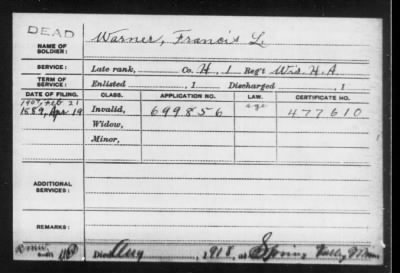 DEAD
NAME OF SOLDIER: Warner, Francis L.
SERVICE: Late rank, Co. H, 1 Reg't Wis. H. A.
TERM OF SERVICE: Enlisted , 1 Discharged , 1
DATE OF FILING. CLASS. APPLICATION NO. LAW. CERTIFICATE NO.
1907, Feb 21 age
1889, Apr 19 Invalid, 699856 477610
Widow,
Minor,
ADDITIONAL SERVICES:
REMARKS:
Died Aug , 1918, at Spring Valley Minn